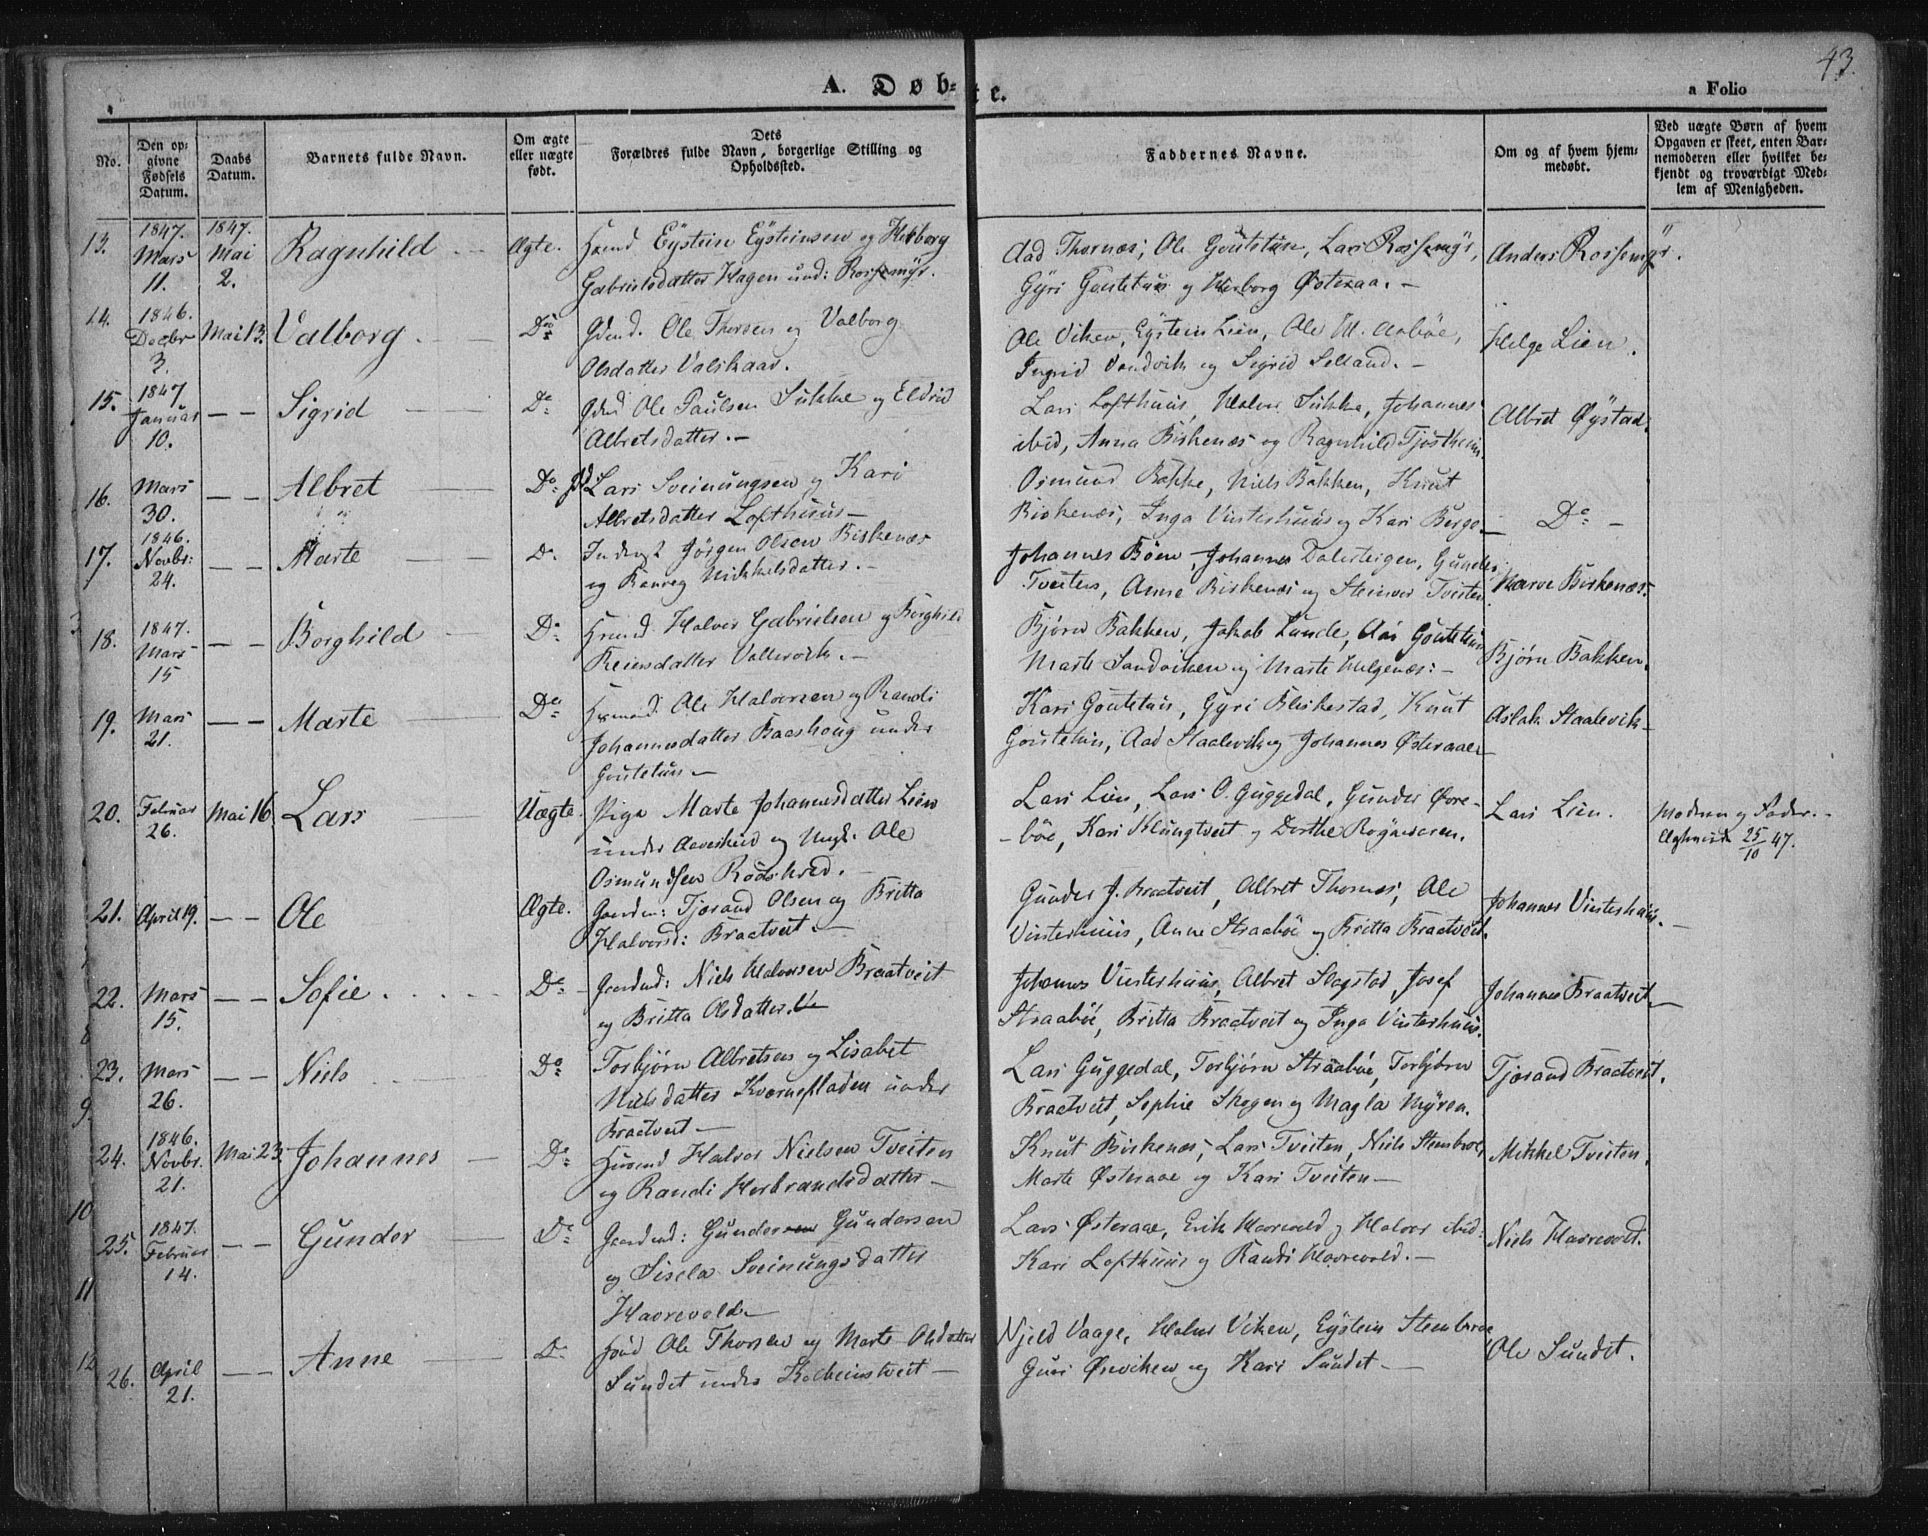 43.
A. Døb- te.
a Folio
No.
Den op-
givne
Fødsels
Datum.
Daabs
Datum.
Barnets fulde Navn.
Om ægte
eller uægte
født.
Dets
Forældres fulde Navn, borgerlige Stilling og
Opholdssted.
Faddernes Navne.
Om og af hvem hjem-
medøbt.
Ved uægte Børn af hvem
Opgaven er skeet, enten Bar-
nemoderen eller hvilket be-
kjendt og troværdigt Med-
lem af Menigheden.
13. 1847. Mars 11. 1847. Mai 2. Ragnhild Ægte.
Huusmd Eystein Eysteinsen og Herborg
Gabrielsdatter Hagen und: Rossemyr.
Aad Thornæs, Ole Goutetun, Lars Rossemyr,
Gyri Goutetun og Herborg Østeraa.
Anders Rossemyr.
14. 1846. Decbr 3. Mai 13. Valborg Do
Gdmd. Ole Thorsen og Valborg
Olsdatter Valskaar.
Ole Viken, Eystein Lien, Ole M. Aabøe,
Ingrid Sandvik og Sigrid Selland.
Helge Lien.
15. 1847 Januar 10. — — Sigrid Do
Gdmd Ole Paulsen Sukke og Eldrid
Albretsdatter.
Lars Lofthuus, Halvor Sukke, Johannes
ibid, Anna Birkenæs og Ragnhild Tjostheim.
Albret Øystad.
16. Mars 30. — — Albret Do
Gdmd Lars Sveinungsen og Kari
Albretsdatter Lofthuus
Osmund Bakke, Niels Bakken, Knut
Birkenæs, Inga Vinterhuus og Kari Berge
Do
17. 1846. Novbr: 24. — — Marte Do
Inderst Jørgen Olsen Birkenæs
og Ranveg Mikkelsdatter.
Johannes Bøen, Johannes Dalesteigen, Gunder
Tveiten, Anne Birkenæs og Steinvor Tveiten
Narve Birkenæs.
18. 1847. Mars 15 — — Borghild Do
Huusmd Halvor Gabrielsen og Borghild
Reiersdatter Vallevik.
Bjørn Bakken, Jakob Lunde, Aas Goutetun
Marte Sandviken og Marte Helgenæs:
Bjørn Bakken.
19. Mars 21. — — Marte Do
Huusmd. Ole Halvorsen og Randi
Johannesdatter Baashoug under
Goutetun
Kari Goutetun, Gyri Bleikestad, Knut
Goutetun, Aad Staalevik og Johannes Østeraae
Aslak Staalevik
20. Februar 26. Mai 16. Lars Uægte.
Pige Marte Johannesdatter Lien
under Aaveshed og Ungk. Ole
Osmundsen Rødshed.
Lars Lien, Lars O. Guggedal, Gunder Øvre-
bøe, Kari Klungtveit og Dorthe Rognaaren.
Lars Lien.
Moderen og Fader.
25/10 47.
21. April 19. — — Ole Ægte.
Gaardm: Tjerand Olsen og Britta
Halvorsd: Braatveit.
Gunder J. Braatveit, Albret Thornæs, Ole
Vinterhuus, Anne Straabøe og Britta Braatveit.
Johannes Vinterhuus.
22. Mars 15. — — Sofie Do
Gaardmd: Niels Halvorsen Braatveit
og Britta Olsdatter.
Johannes Vinterhuus, Albret Slogstad, Josef
Straabøe, Britta Braatveit og Inga Vinterhuus.
Johannes Braatveit
23. Mars 26. — — Niels Do
Torbjørn Albretsen og Lisabet
Nielsdatter Kvernefladen under
Braatveit
Lars Guggedal, Torbjørn Straabøe, Torbjørn
Braatveit, Sophie Skogen og Magla Myren.
Tjerand Braatveit.
24. 1846. Novbr. 21. Mai 23 Johannes Do
Huusmd Halvor Nielsen Tveiten
og Randi Herbrandsdatter
Knut Birkenæs, Lars Tveiten, Niels Stenbroe,
Marte Østeraae og Kari Tveiten
Mikkel Tveiten.
25. 1847. Februar 14. — — Gunder Do
Gaardmd: Gunder Gundersen
og Sisela Sveinungsdatter
Havrevold
Lars Østeraae, Erik Havrevold og Halvor ibid:
Kari Lofthuus og Randi Havrevold.
Niels Havrevold.
26. April 21. — — Anne Do
Ole Thorsen og Marte Olsdatter
Sundet under Kolbeinstveit
Njeld Vaage, Halvor Viken, Eystein Stenbroe
Guri Øreviken og Kari Sundet
Ole Sundet.